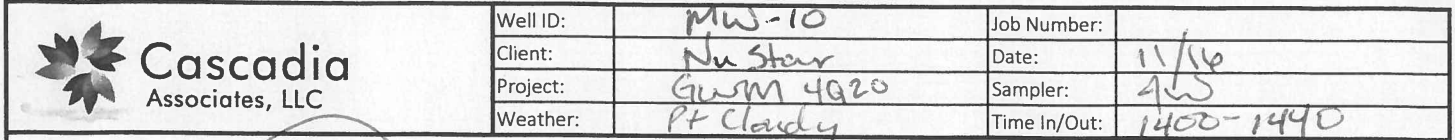 Cascadia
Associates, LLC
Well ID: MW-10 Job Number:
Client: NuStar Date: 11/16
Project: GWM 4Q20 Sampler:
Weather: Pt Cloudy Time In/Out: 1400-1440